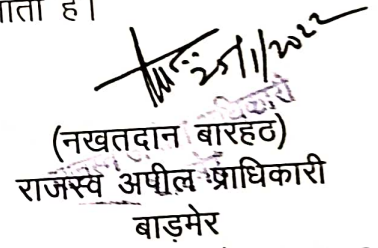 है।
25/1/2022
(नखतदान बारहठ)
राजस्व अपील प्राधिकारी
बाड़मेर